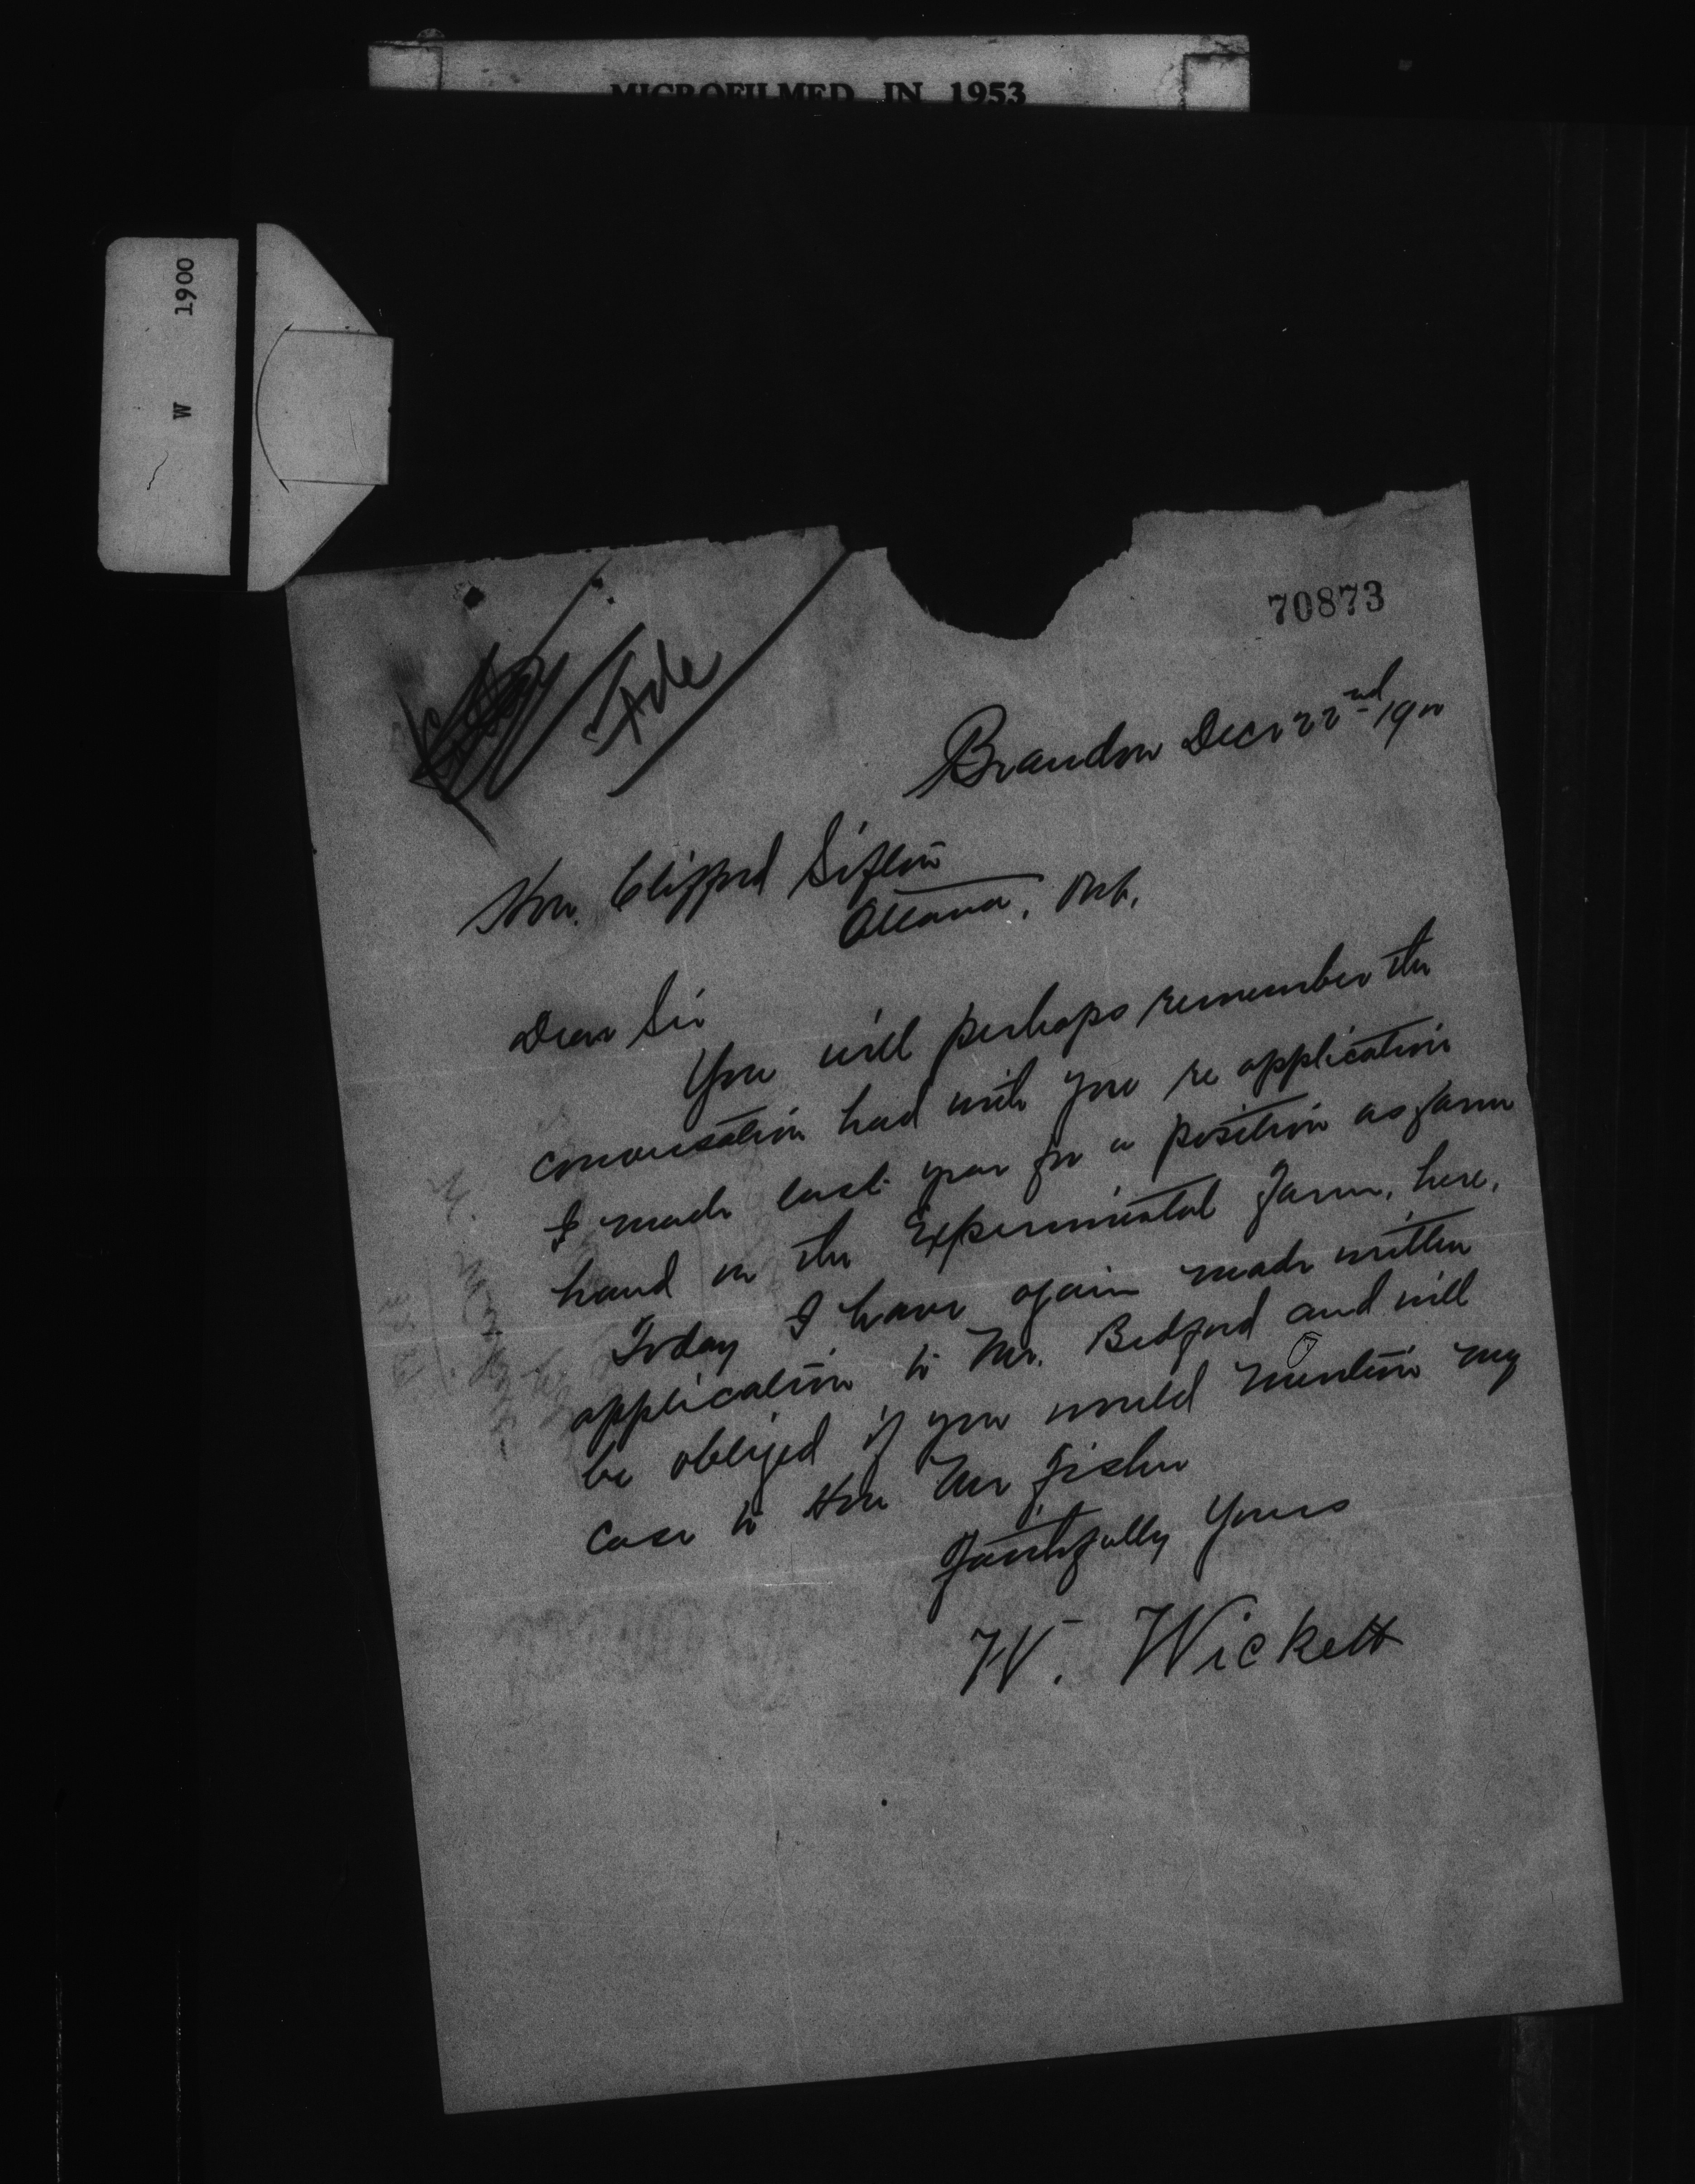 MICROFILMED IN 1953
W 1900
70873
File
Brandon Decr 22nd 1900
Hon. Clifford Sifton
Ottawa, Ont.
Dear Sir
You will perhaps remember the
conversation had with you re application
I made last year for a position as farm
hand on the Experimental Farm, here.
Today I have again made written
application to Mr. Bedford and will
be obliged if you would mention my
case to Hon Mr Fisher
Faithfully Yours
W. Wickett